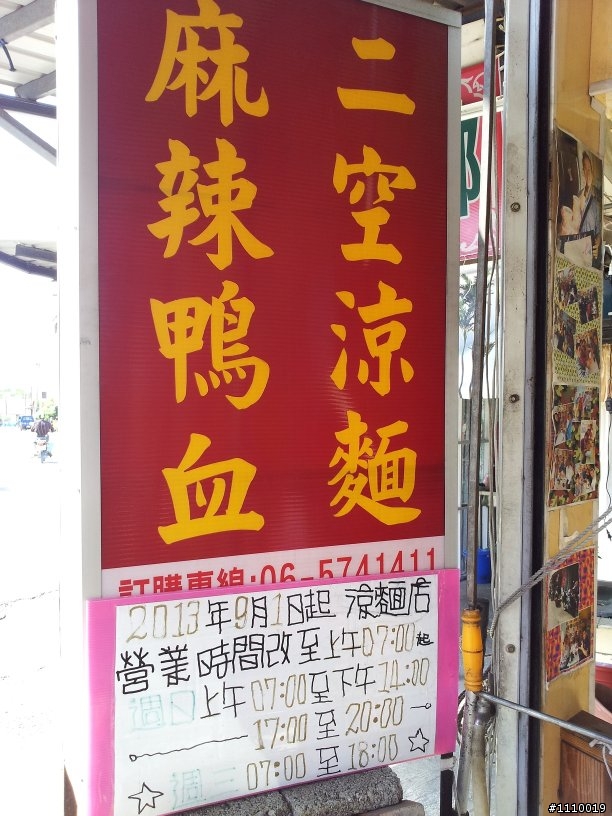 二空涼麵
麻辣鴨血
訂購專線:06-5741411
2013年9月1日起 涼麵店
營業時間改至上午07:00起
週日上午07:00至下午14:00
17:00至20:00
週三07:00至18:00
#1110019